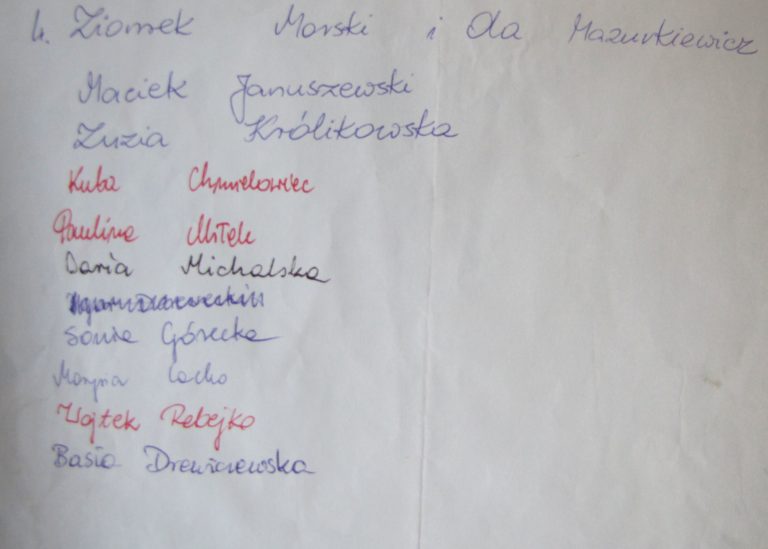 4. Ziomek Morski i Ola Mazurkiewicz
Maciek Januszewski
Zuzia Królikowska
Kuba Chmielowiec
Paulina Miłek
Daria Michalska
Sonia Górecka
Marysia
Wojtek Rebejko
Basia Drewiczewska